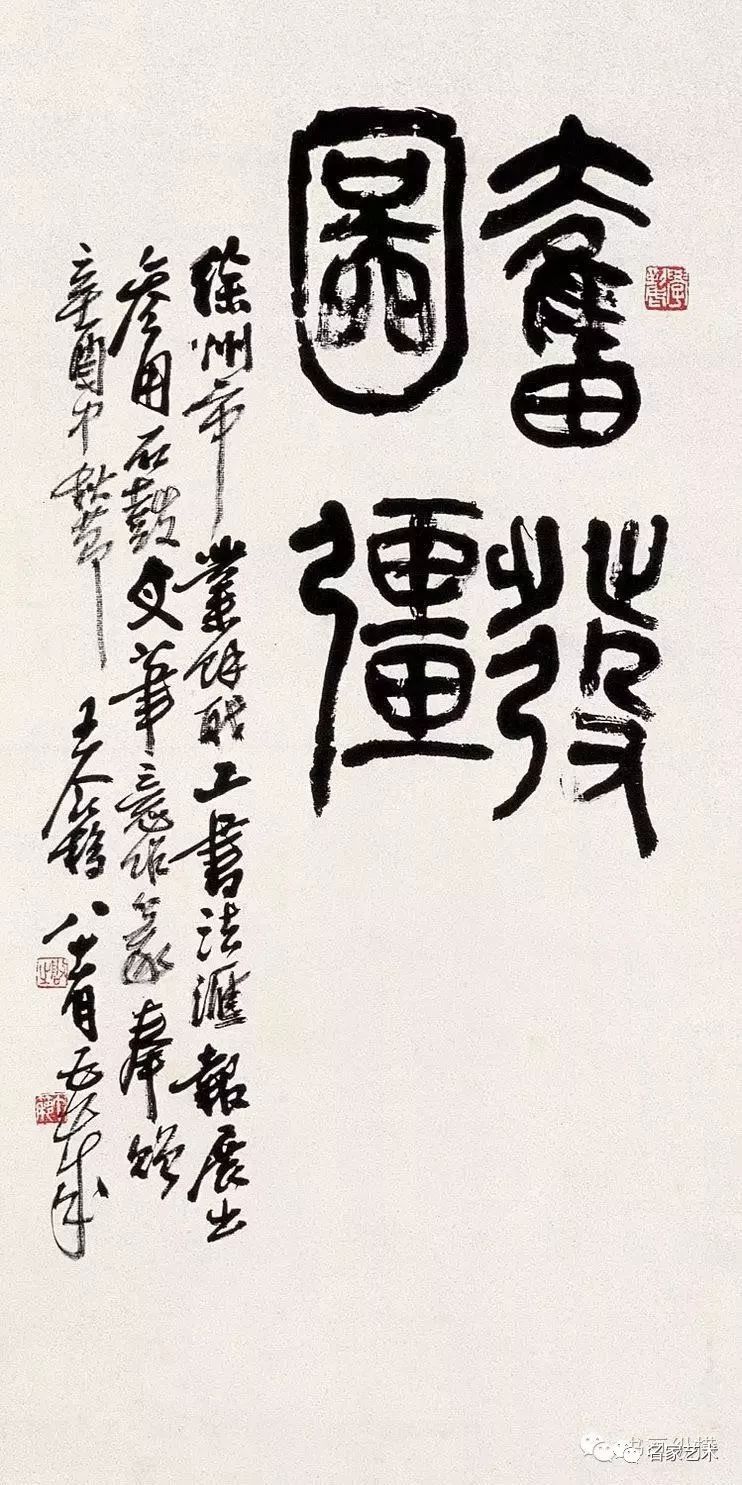 奮發
圖彊
徐州市業餘職工書法滙報展出
參用石鼓文筆意作篆奉贈
辛酉中秋節 王个簃 八十有五
名家艺术